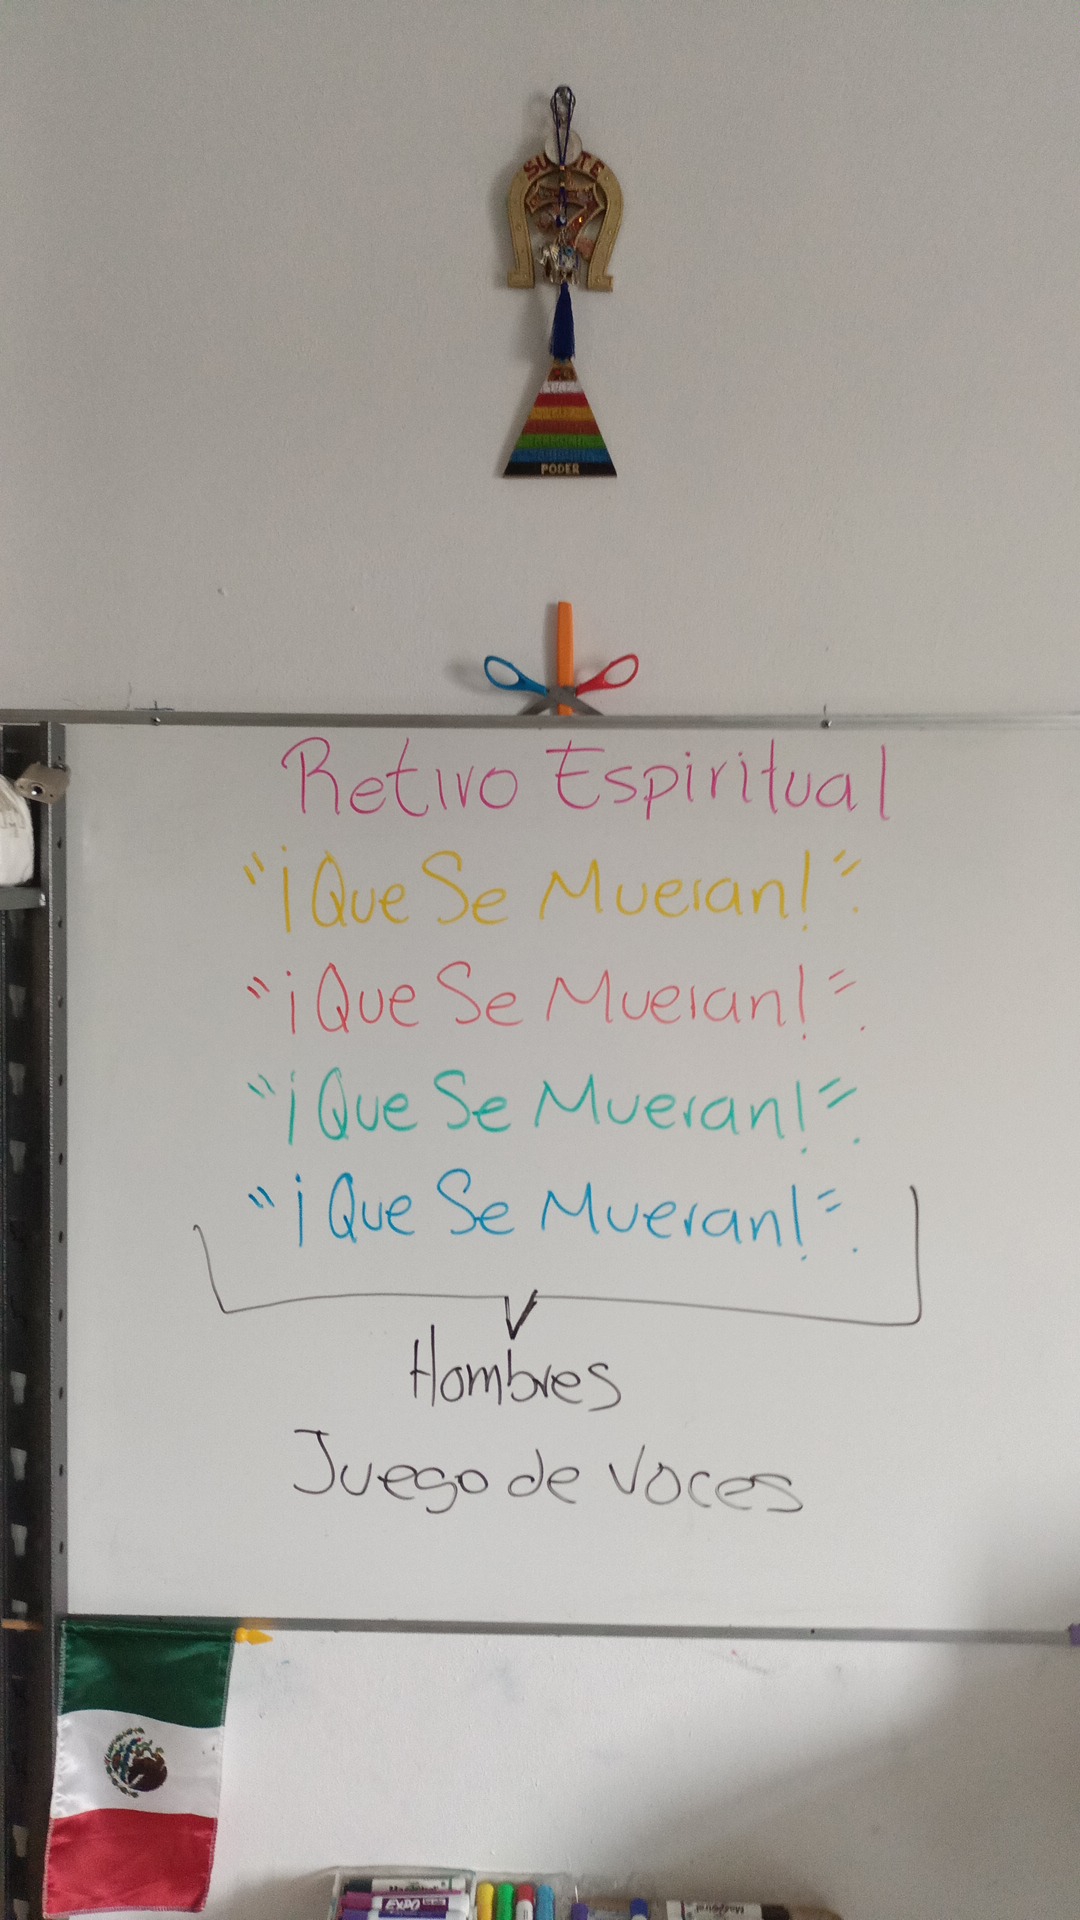 PODER
Retiro Espiritual
"¡Que Se Mueran!".
"¡Que Se Mueran!".
"¡Que Se Mueran!".
"¡Que Se Mueran!".
Hombres
Juego de Voces
EXPO